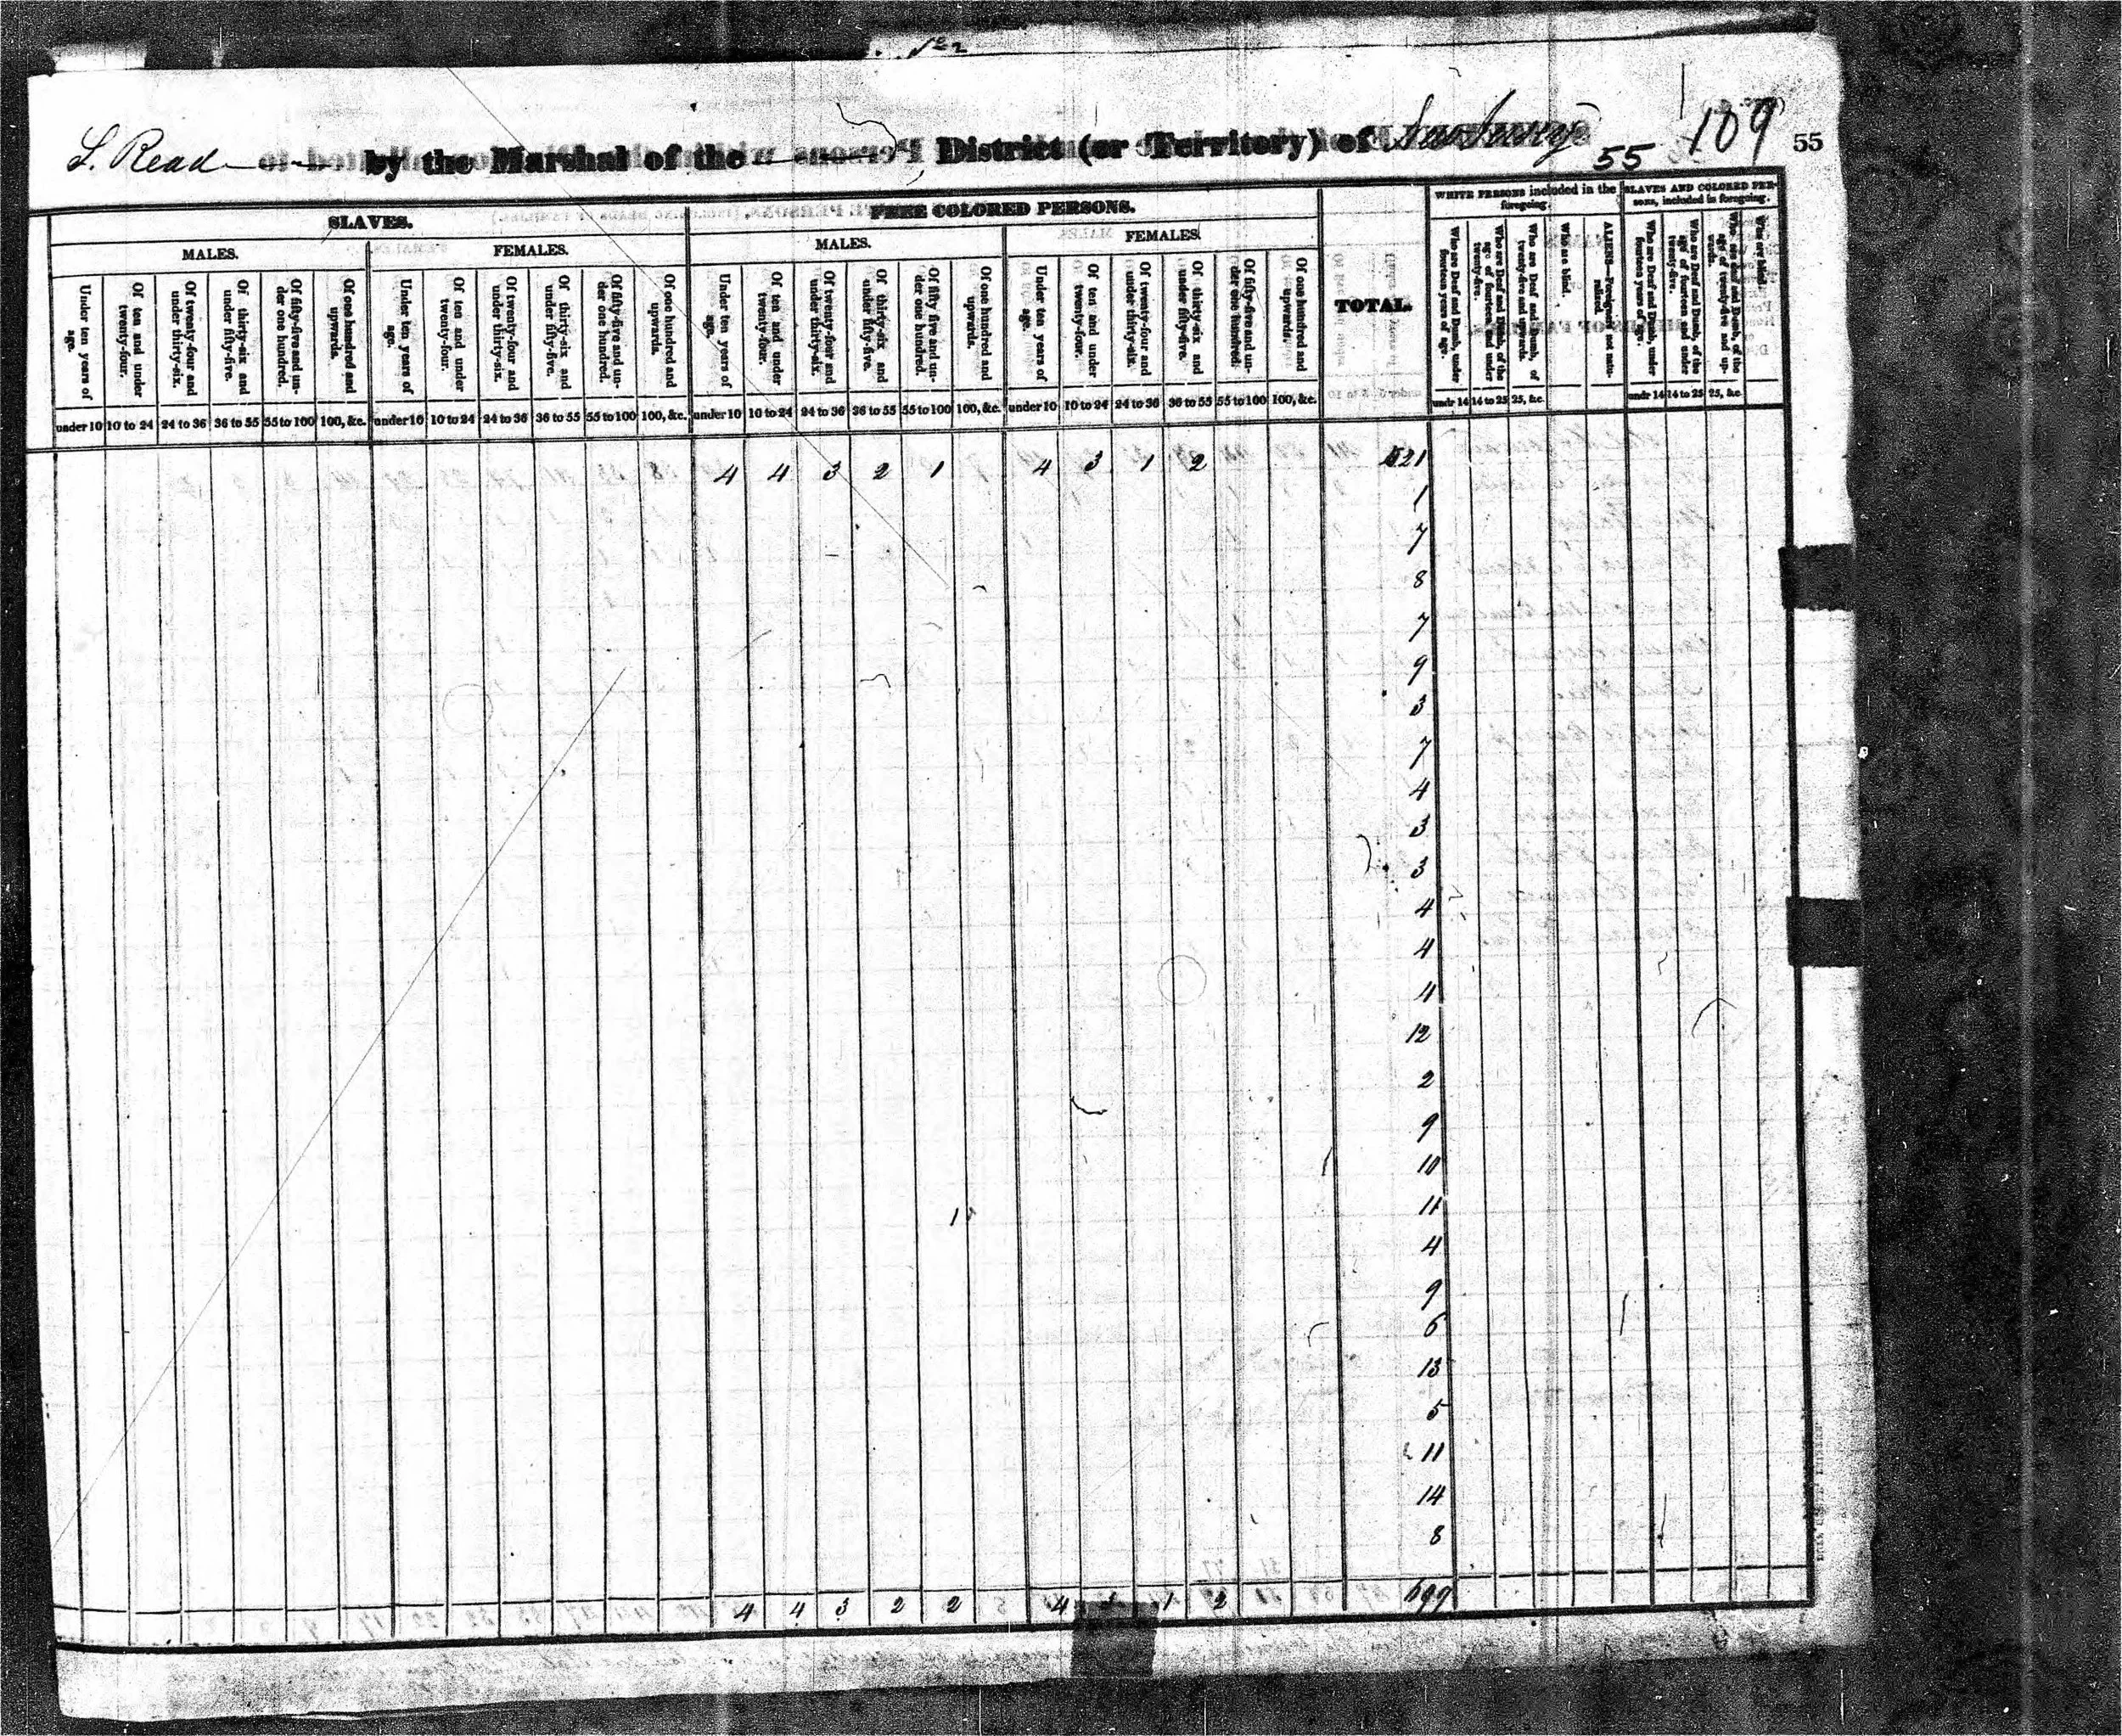 No 2
109
L. Read by the Marshal of the District (or Territory) of New Jersey 55 55
SLAVES. FREE COLORED PERSONS. TOTAL. WHITE PERSONS included in the foregoing. SLAVES AND COLORED PERSONS, included in foregoing.
MALES. FEMALES. MALES. FEMALES.
Under ten years of age. Of ten and under twenty-four. Of twenty-four and under thirty-six. Of thirty-six and under fifty-five. Of fifty-five and under one hundred. Of one hundred and upwards. Under ten years of age. Of ten and under twenty-four. Of twenty-four and under thirty-six. Of thirty-six and under fifty-five. Of fifty-five and under one hundred. Of one hundred and upwards. Under ten years of age. Of ten and under twenty-four. Of twenty-four and under thirty-six. Of thirty-six and under fifty-five. Of fifty five and under one hundred. Of one hundred and upwards. Under ten years of age. Of ten and under twenty-four. Of twenty-four and under thirty-six. Of thirty-six and under fifty-five. Of fifty-five and under one hundred. Of one hundred and upwards. Who are Deaf and Dumb, under fourteen years of age. Who are Deaf and Dumb, of the age of fourteen and under twenty-five. Who are Deaf and Dumb, of twenty-five and upwards. Who are blind. ALIENS—Foreigners not naturalized. Who are Deaf and Dumb, under fourteen years of age. Who are Deaf and Dumb, of the age of fourteen and under twenty-five. Who are deaf and Dumb, of the age of twenty-five and upwards. Who are blind.
under 10 10 to 24 24 to 36 36 to 55 55 to 100 100, &c. under 10 10 to 24 24 to 36 36 to 55 55 to 100 100, &c. under 10 10 to 24 24 to 36 36 to 55 55 to 100 100, &c. under 10 10 to 24 24 to 36 36 to 55 55 to 100 100, &c. undr 14 14 to 25 25, &c. undr 14 14 to 25 25, &c.
4 4 3 2 1 4 3 1 2 521
1
7
8
7
9
3
7
4
3
3
4
4
4
12
2
9
10
1 11
4
9
6
13
5
11
14
8
4 4 3 2 2 4 3 1 2 699